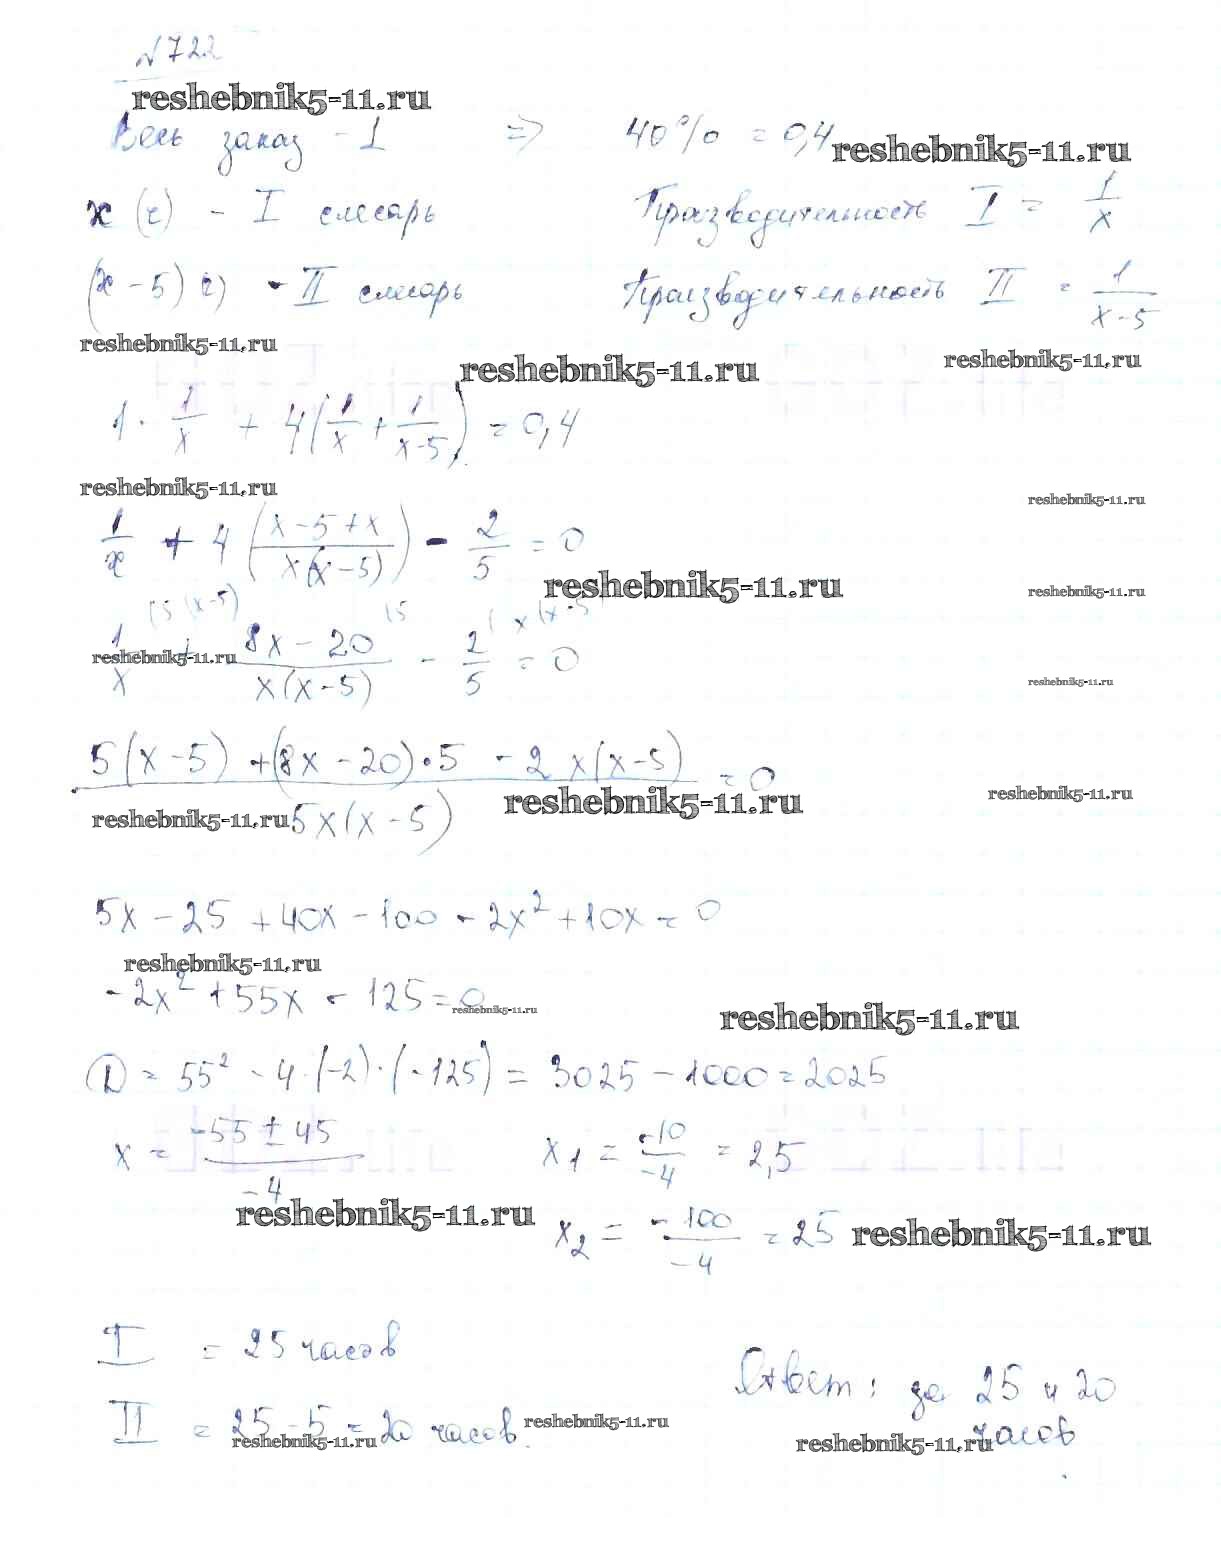 №722
reshebnik5-11.ru
Весь заказ - 1 => 40% = 0,4 reshebnik5-11.ru
x (ч) - I слесарь Производительность I = 1/x
(x - 5) ч) - II слесарь Производительность II = 1/(x-5)
reshebnik5-11.ru reshebnik5-11.ru reshebnik5-11.ru
1 · 1/x + 4(1/x + 1/(x-5)) = 0,4
reshebnik5-11.ru reshebnik5-11.ru
1/x + 4 ((x-5+x)/(x(x-5))) - 2/5 = 0
reshebnik5-11.ru reshebnik5-11.ru
(5 (x-5) (5 ( x(x-5
1/x + (8x - 20)/(x(x-5)) - 2/5 = 0
reshebnik5-11.ru reshebnik5-11.ru
(5(x-5) + (8x-20)·5 - 2x(x-5))/(5x(x-5)) = 0
reshebnik5-11.ru reshebnik5-11.ru reshebnik5-11.ru
5x - 25 + 40x - 100 - 2x² + 10x = 0
reshebnik5-11.ru
-2x² + 55x - 125 = 0
reshebnik5-11.ru reshebnik5-11.ru
D = 55² - 4·(-2)·(-125) = 3025 - 1000 = 2025
x = (-55 ± 45)/-4 x1 = -10/-4 = 2,5
reshebnik5-11.ru x2 = -100/-4 = 25 reshebnik5-11.ru
I = 25 часов
Ответ: за 25 и 20
II = 25 - 5 = 20 часов. reshebnik5-11.ru
reshebnik5-11.ru reshebnik5-11.ru часов